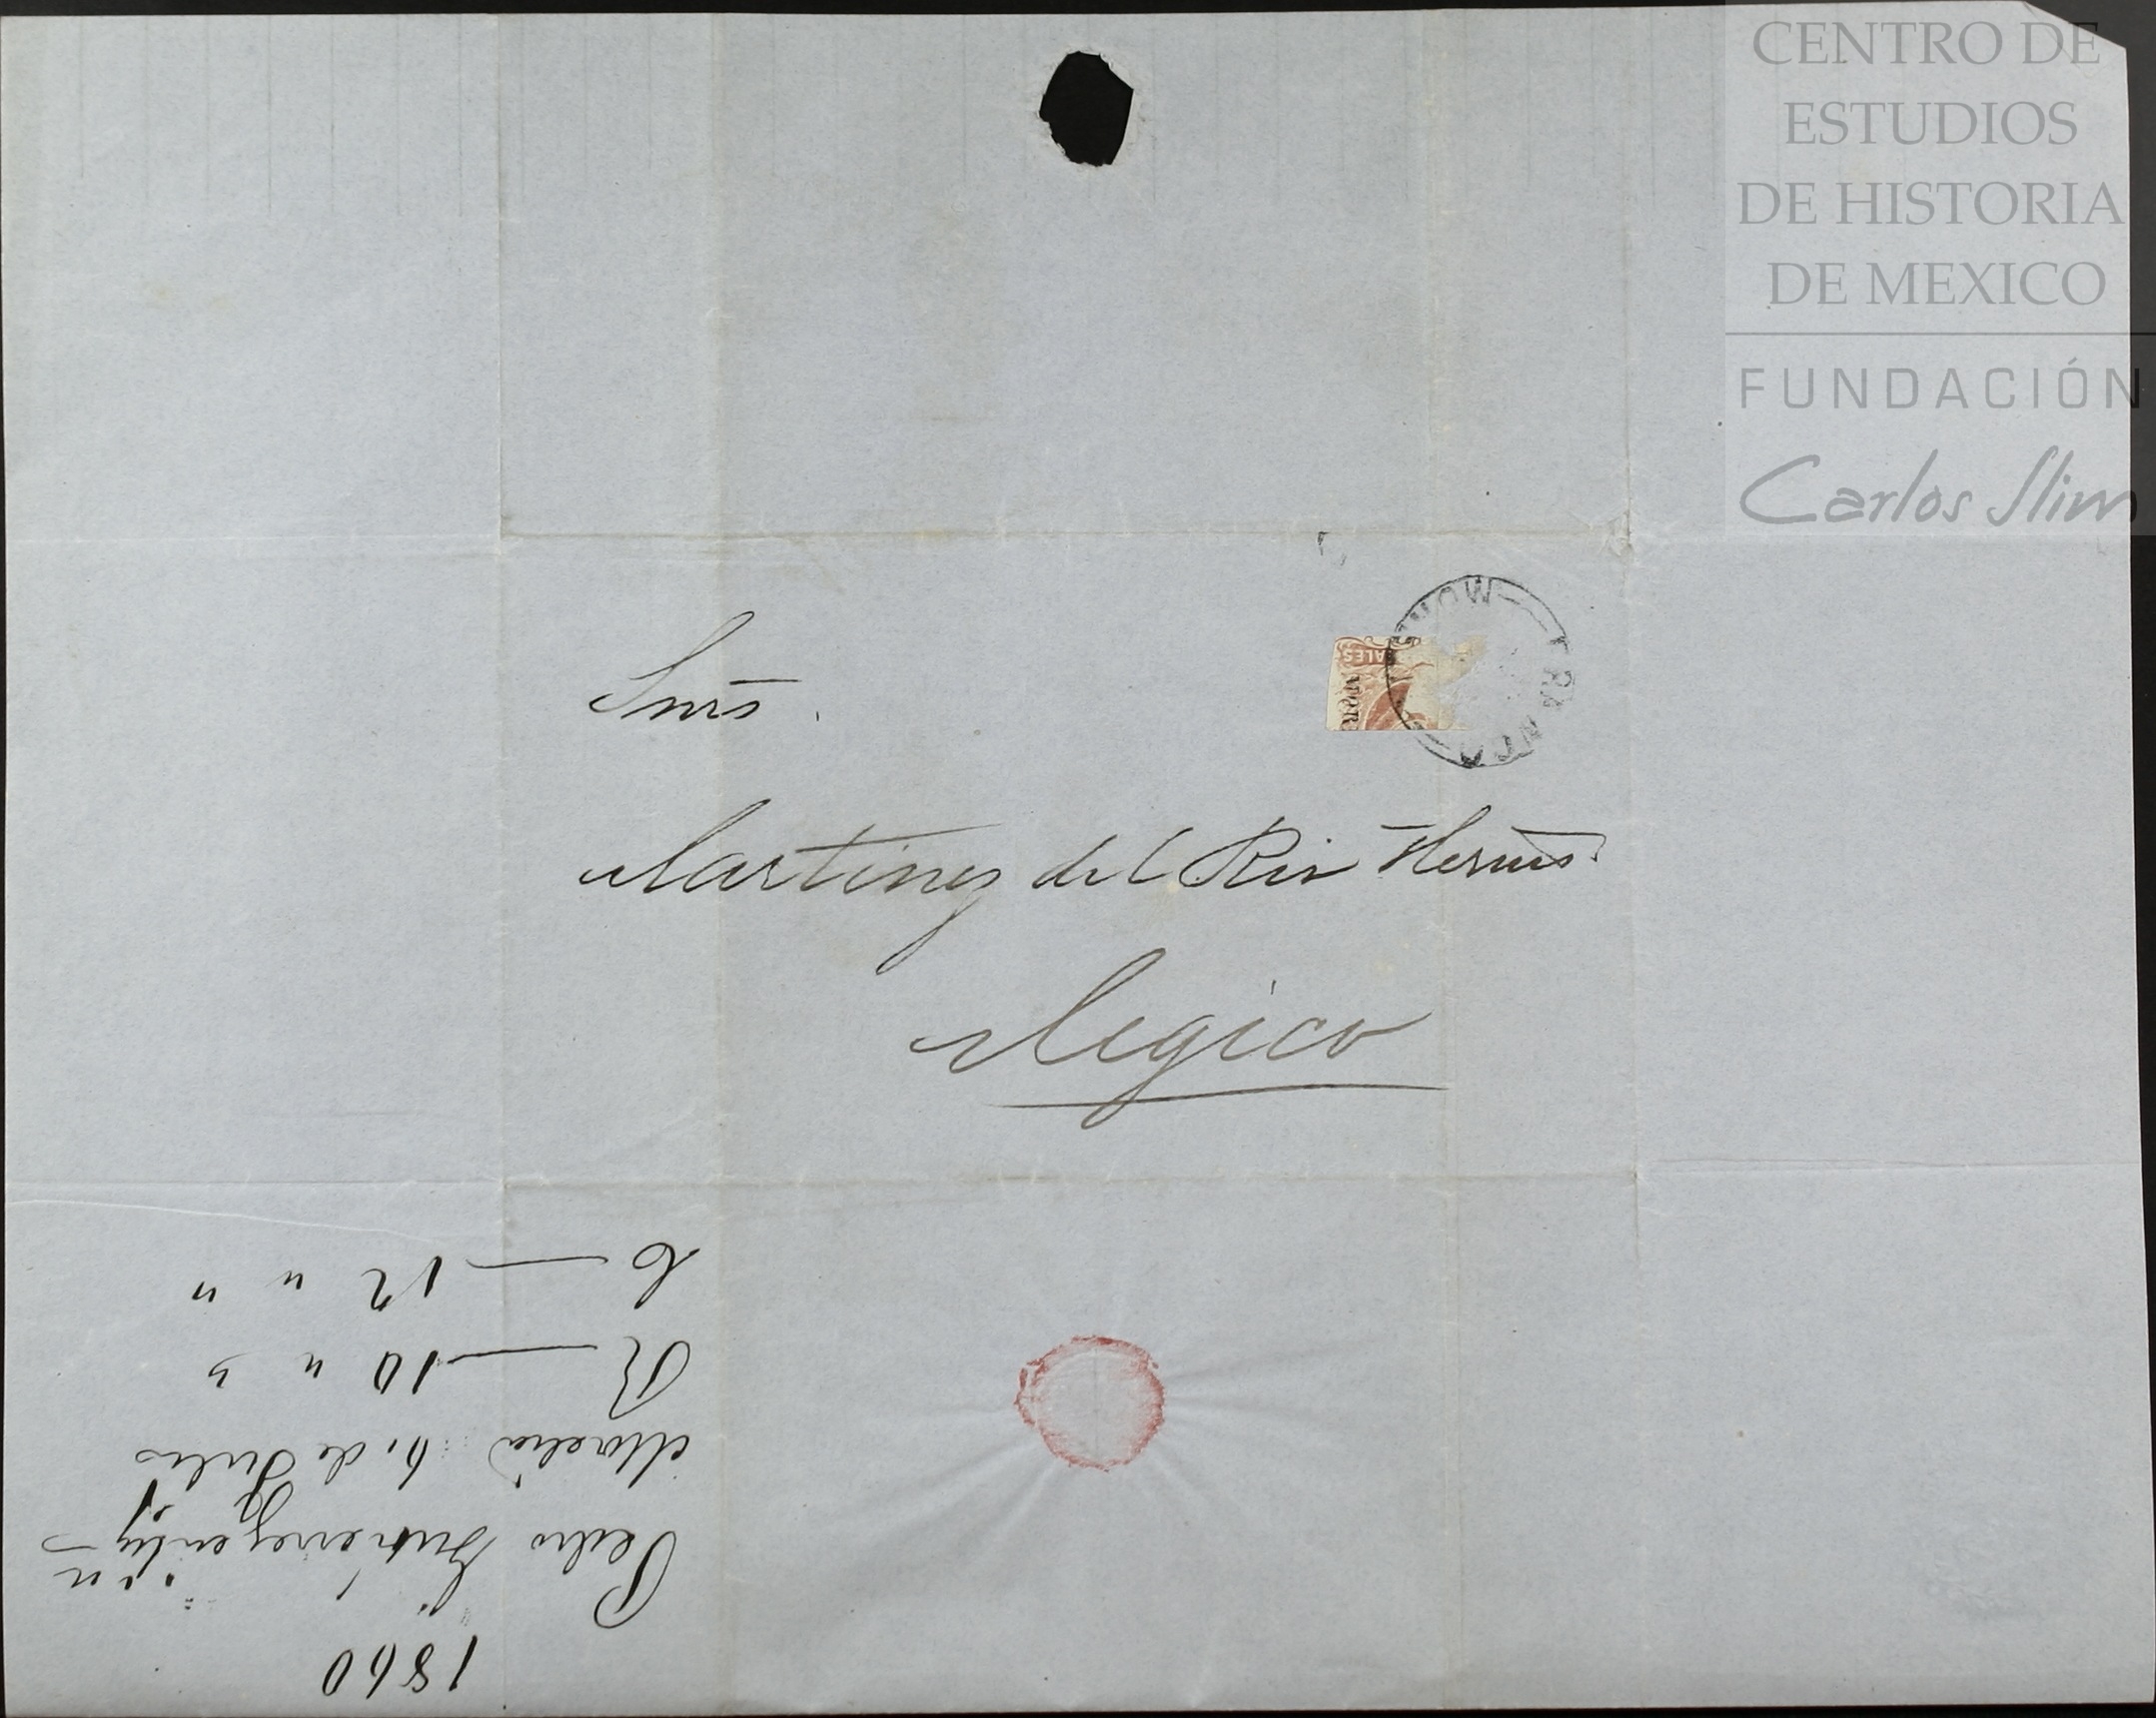 CENTRO DE
ESTUDIOS
DE HISTORIA
DE MEXICO
FUNDACIÓN
Carlos Slim
FRANCO
MO
ALES
Sres.
Martinez del Rio Herms.
Megico
1860
Pedro
Morelia 6, de Julio
R — 10 " "
C — 12 " "